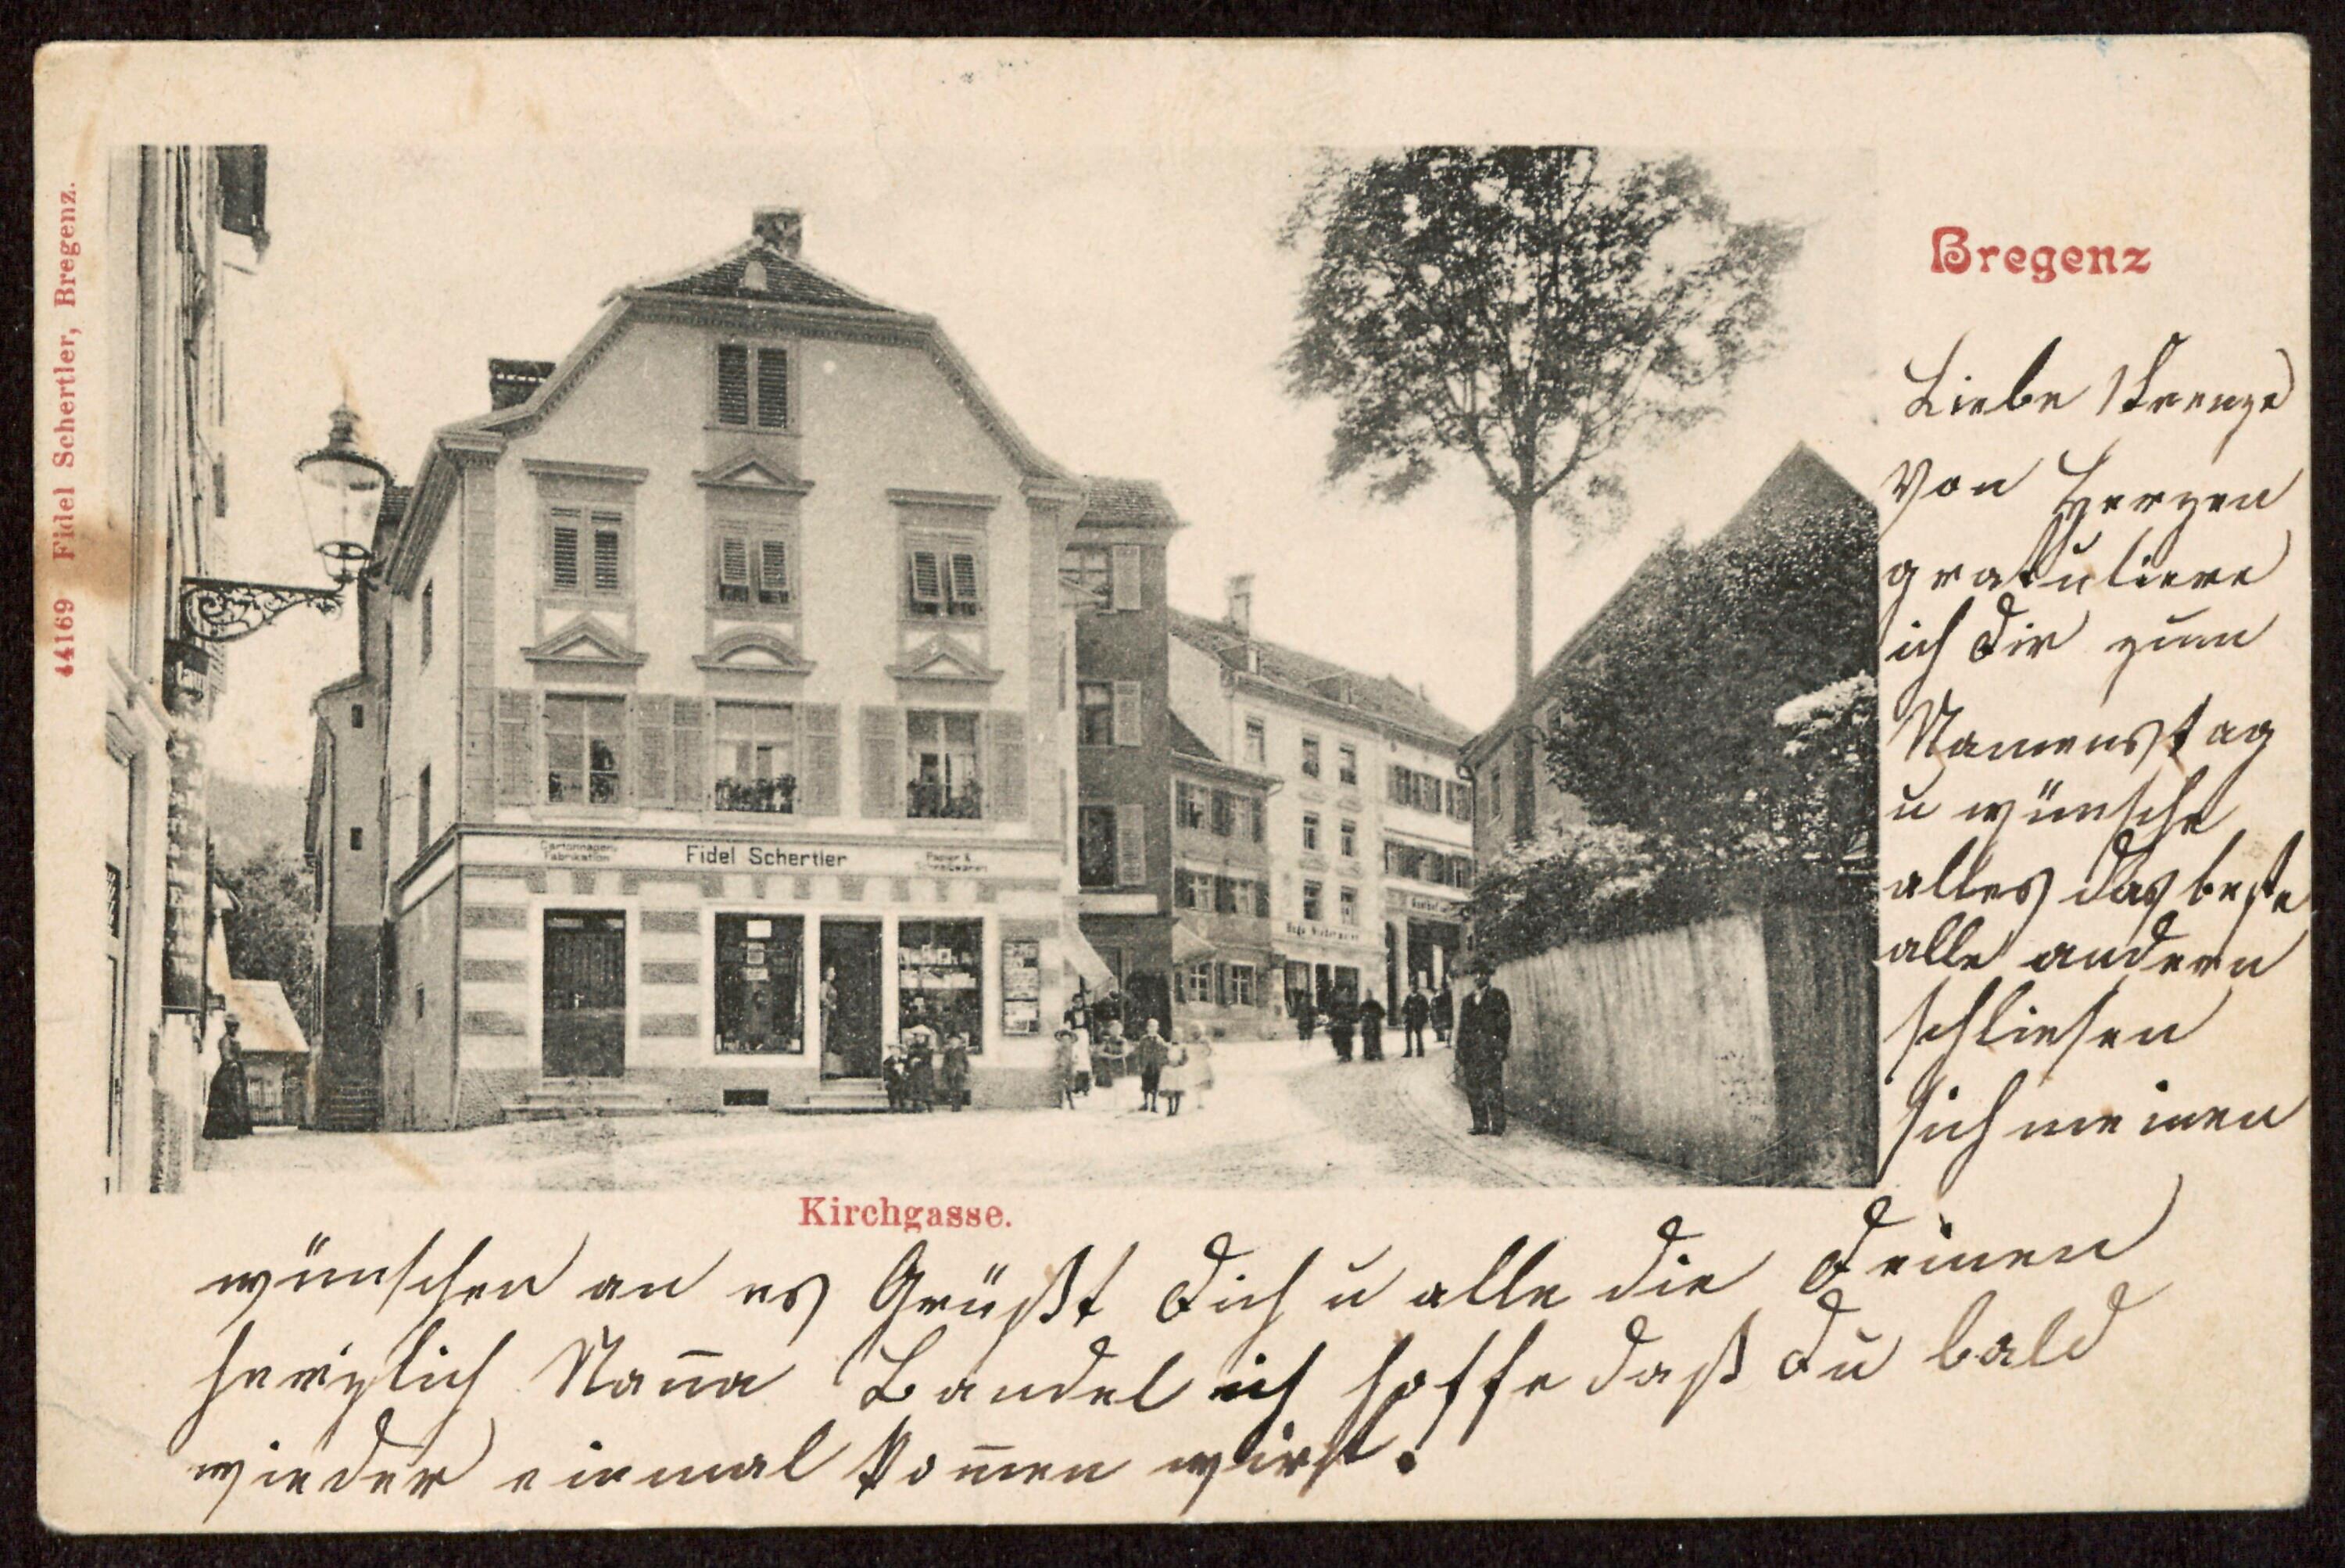 44169 Fidel Schertler, Bregenz.
Bregenz
Cartonnagen
Fabrikation
Fidel Schertler
Papier &
Schreibwaren
Kirchgasse.
Liebe
Von Herzen
gratuliere
ich dir zum
Namenstag
u wünsche
alles das beste
alle andern
schliesen
sich meinen
wünschen an es Grüßt dich u alle die deinen
herzlich Nan̄a Bandel ich hoffe daß du bald
wieder einmal kom̄en wirst.